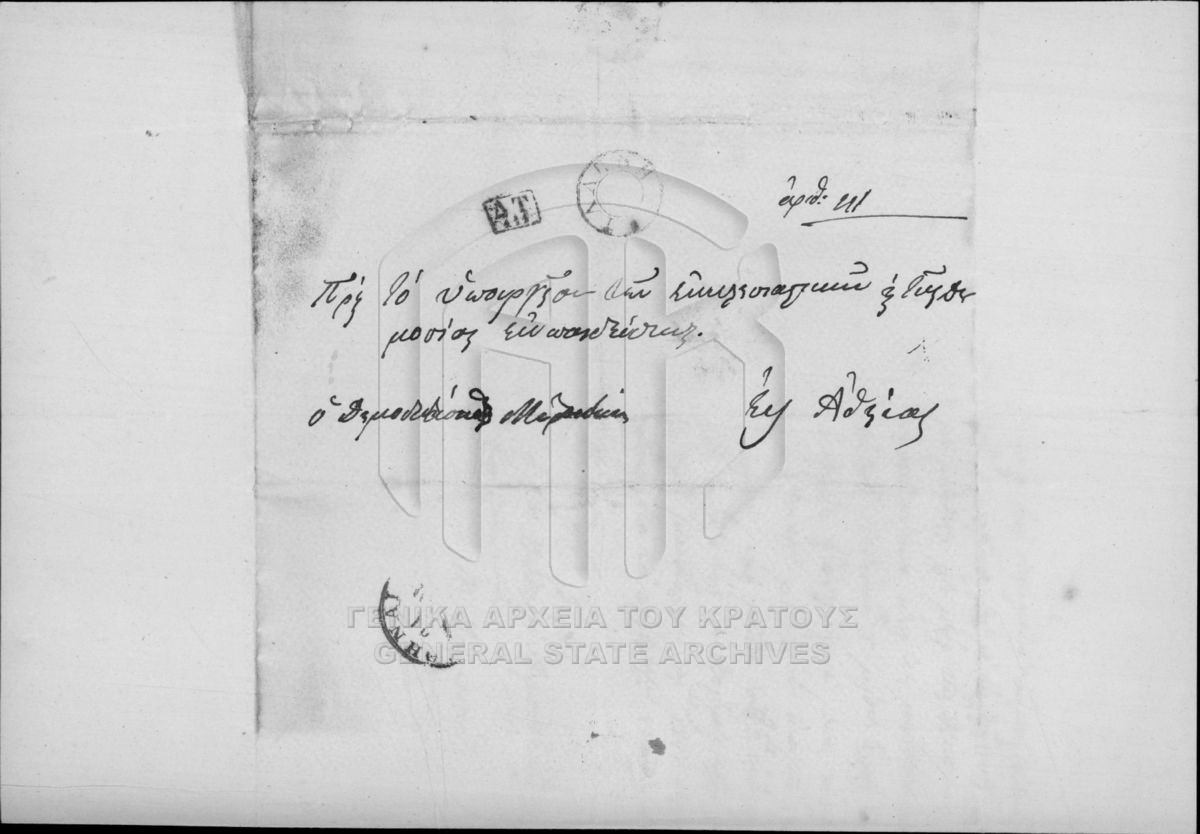 ἀριθ: 111
Α.Τ.
Πρὸς τὸ ὑπουργεῖον τῶν ἐκκλησιαστικῶν κ τῆς δη
μοσίας ἐκπαιδεύσεως.
ὁ δημοδιδάσκαλος
Εἰς Ἀθήνας
ΑΘΗΝΑΙ
ΓΕΝΙΚΑ ΑΡΧΕΙΑ ΤΟΥ ΚΡΑΤΟΥΣ
GENERAL STATE ARCHIVES